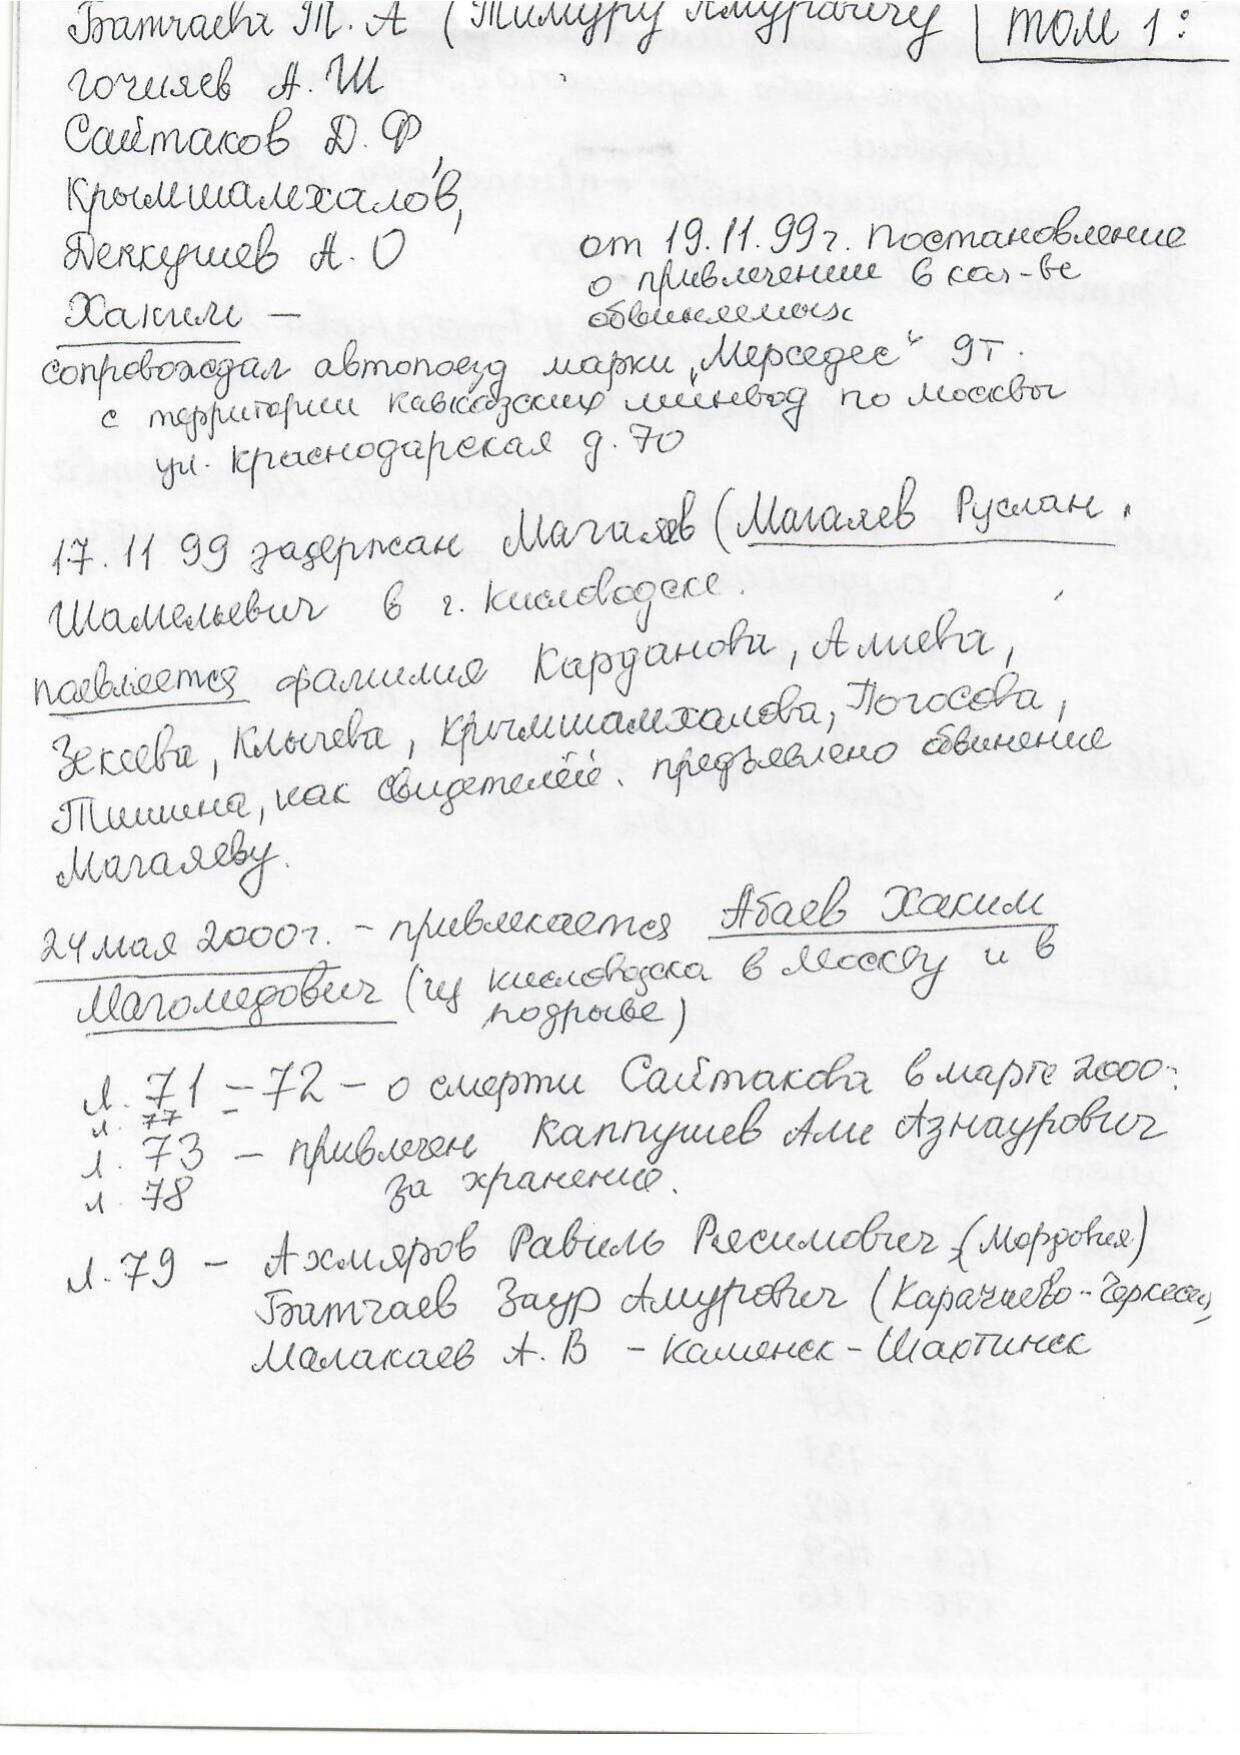 Батчаева Т. А (Тимуру Амуровичу
том 1:
гочияев А. Ш
Сайтаков Д. Ф,
Крымшамхалов,
Деккушев А. О
от 19.11.99г. Постановление
о привлечении в кач-ве
обвиняемых
Хаким —
сопровождал автопоезд марки „Мерседес“ 9т.
с территории кавказских минвод по москвы
ул. Краснодарская д. 70
17.11 99 задержан Магаяев (Магаяев Руслан
Шамельевич в г. Кисловодске.
появляется фамилия Карданова, Алиева,
Зекеева, Клычева, Крымшамхалова, Погосова,
Тишина, как свидетелей. предъявлено обвинение
Магаяеву.
24 мая 2000г. - привлекается Абаев Хаким
Магомедович (из кисловодска в Москву и в
подрыве)
л. 71 - 72 - о смерти Сайтакова в марте 2000.
л. 77 -
л. 73 - привлечен Каппушев Али Азнаурович
л. 78 за хранение.
л. 79 - Ахмяров Равиль Рясимович (Мордовия)
Батчаев Заур Амурович (Карачаево-Черкесия)
Малакаев А. В - Каменск-Шахтинск